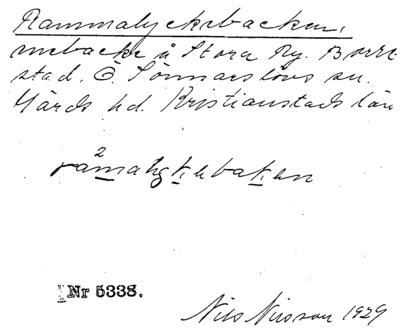 Rammalyckebacken,
uebacke å Stora Ry. Borre-
stad. Ö. Sönnarslövs sn.
Gärds hd. Kristianstads län
Nr 5338.
Nils Nilsson 1929